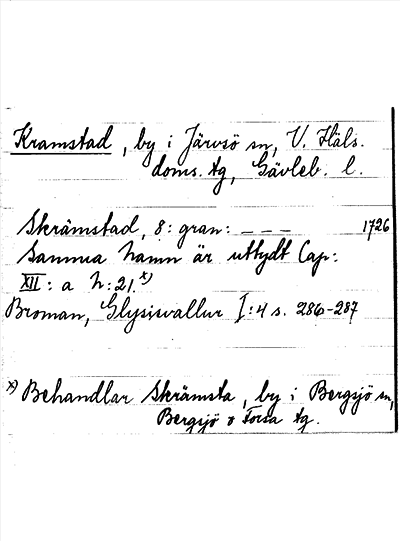 Kramstad, by i Järvsö sn, V. Häls.
doms. tg, Gävleb. l.
Skrämstad, 8: gran: – – – 1726
Samma namn är uttydt Cap:
XII: a n: 21.x)
Broman, Glysisvallur I:4 s. 286-287
x) Behandlar Skrämsta, by i Bergsjö sn,
Bergsjö o Forsa tg.